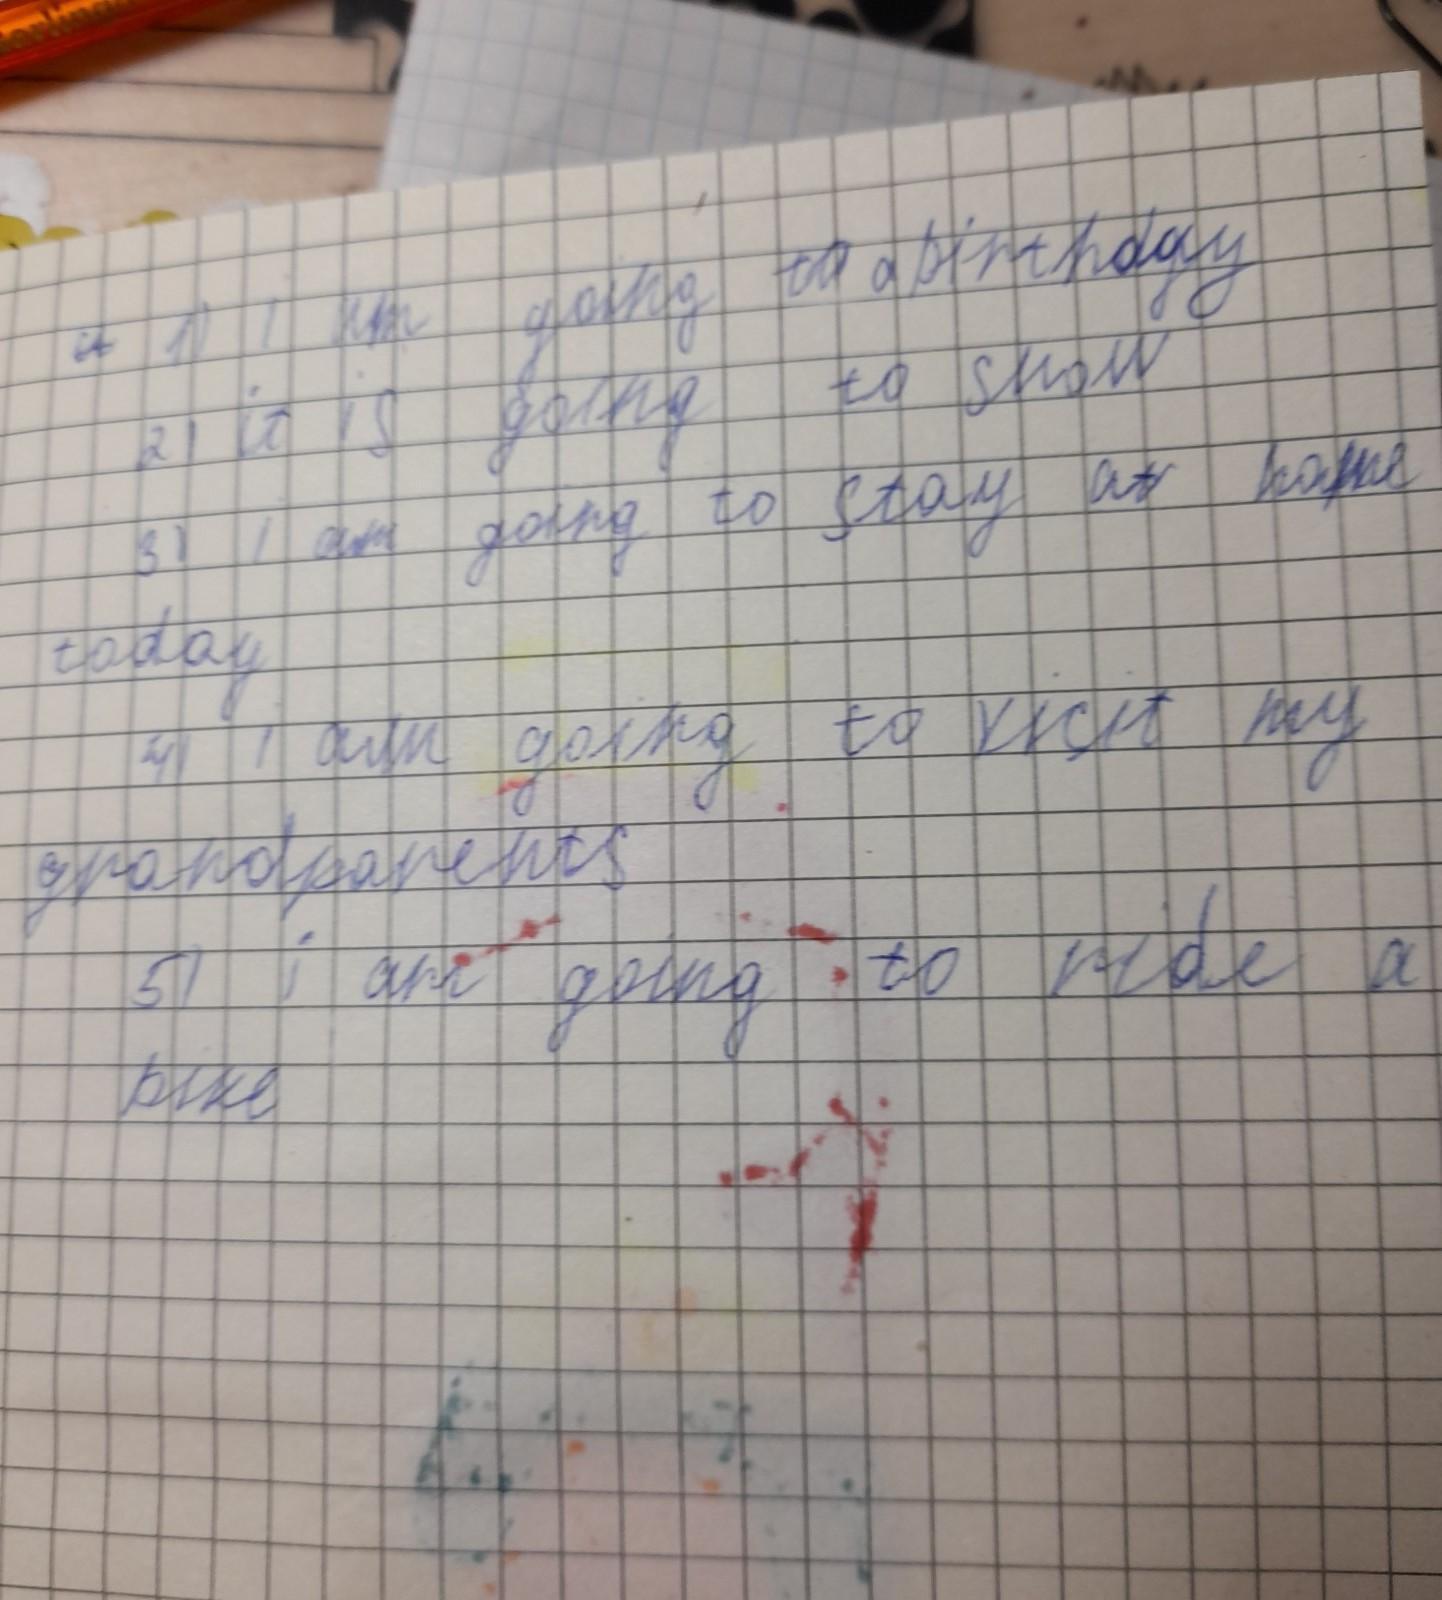 1) i am going to a birthday
2) it is going to snow
3) i am going to stay at home
today
4) i am going to visit my
grandparents
5) i am going to ride a
bike